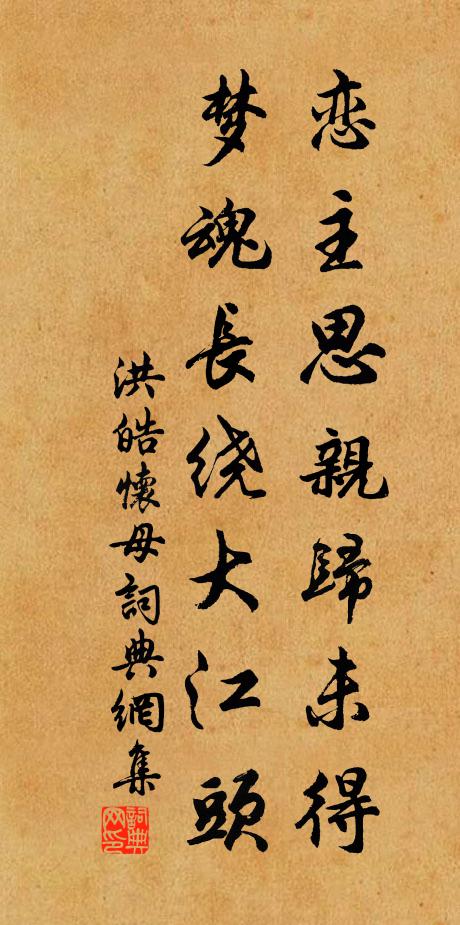 恋主思親歸未得
梦魂長绕大江頭
洪皓懷母詞典網集
詞典网印